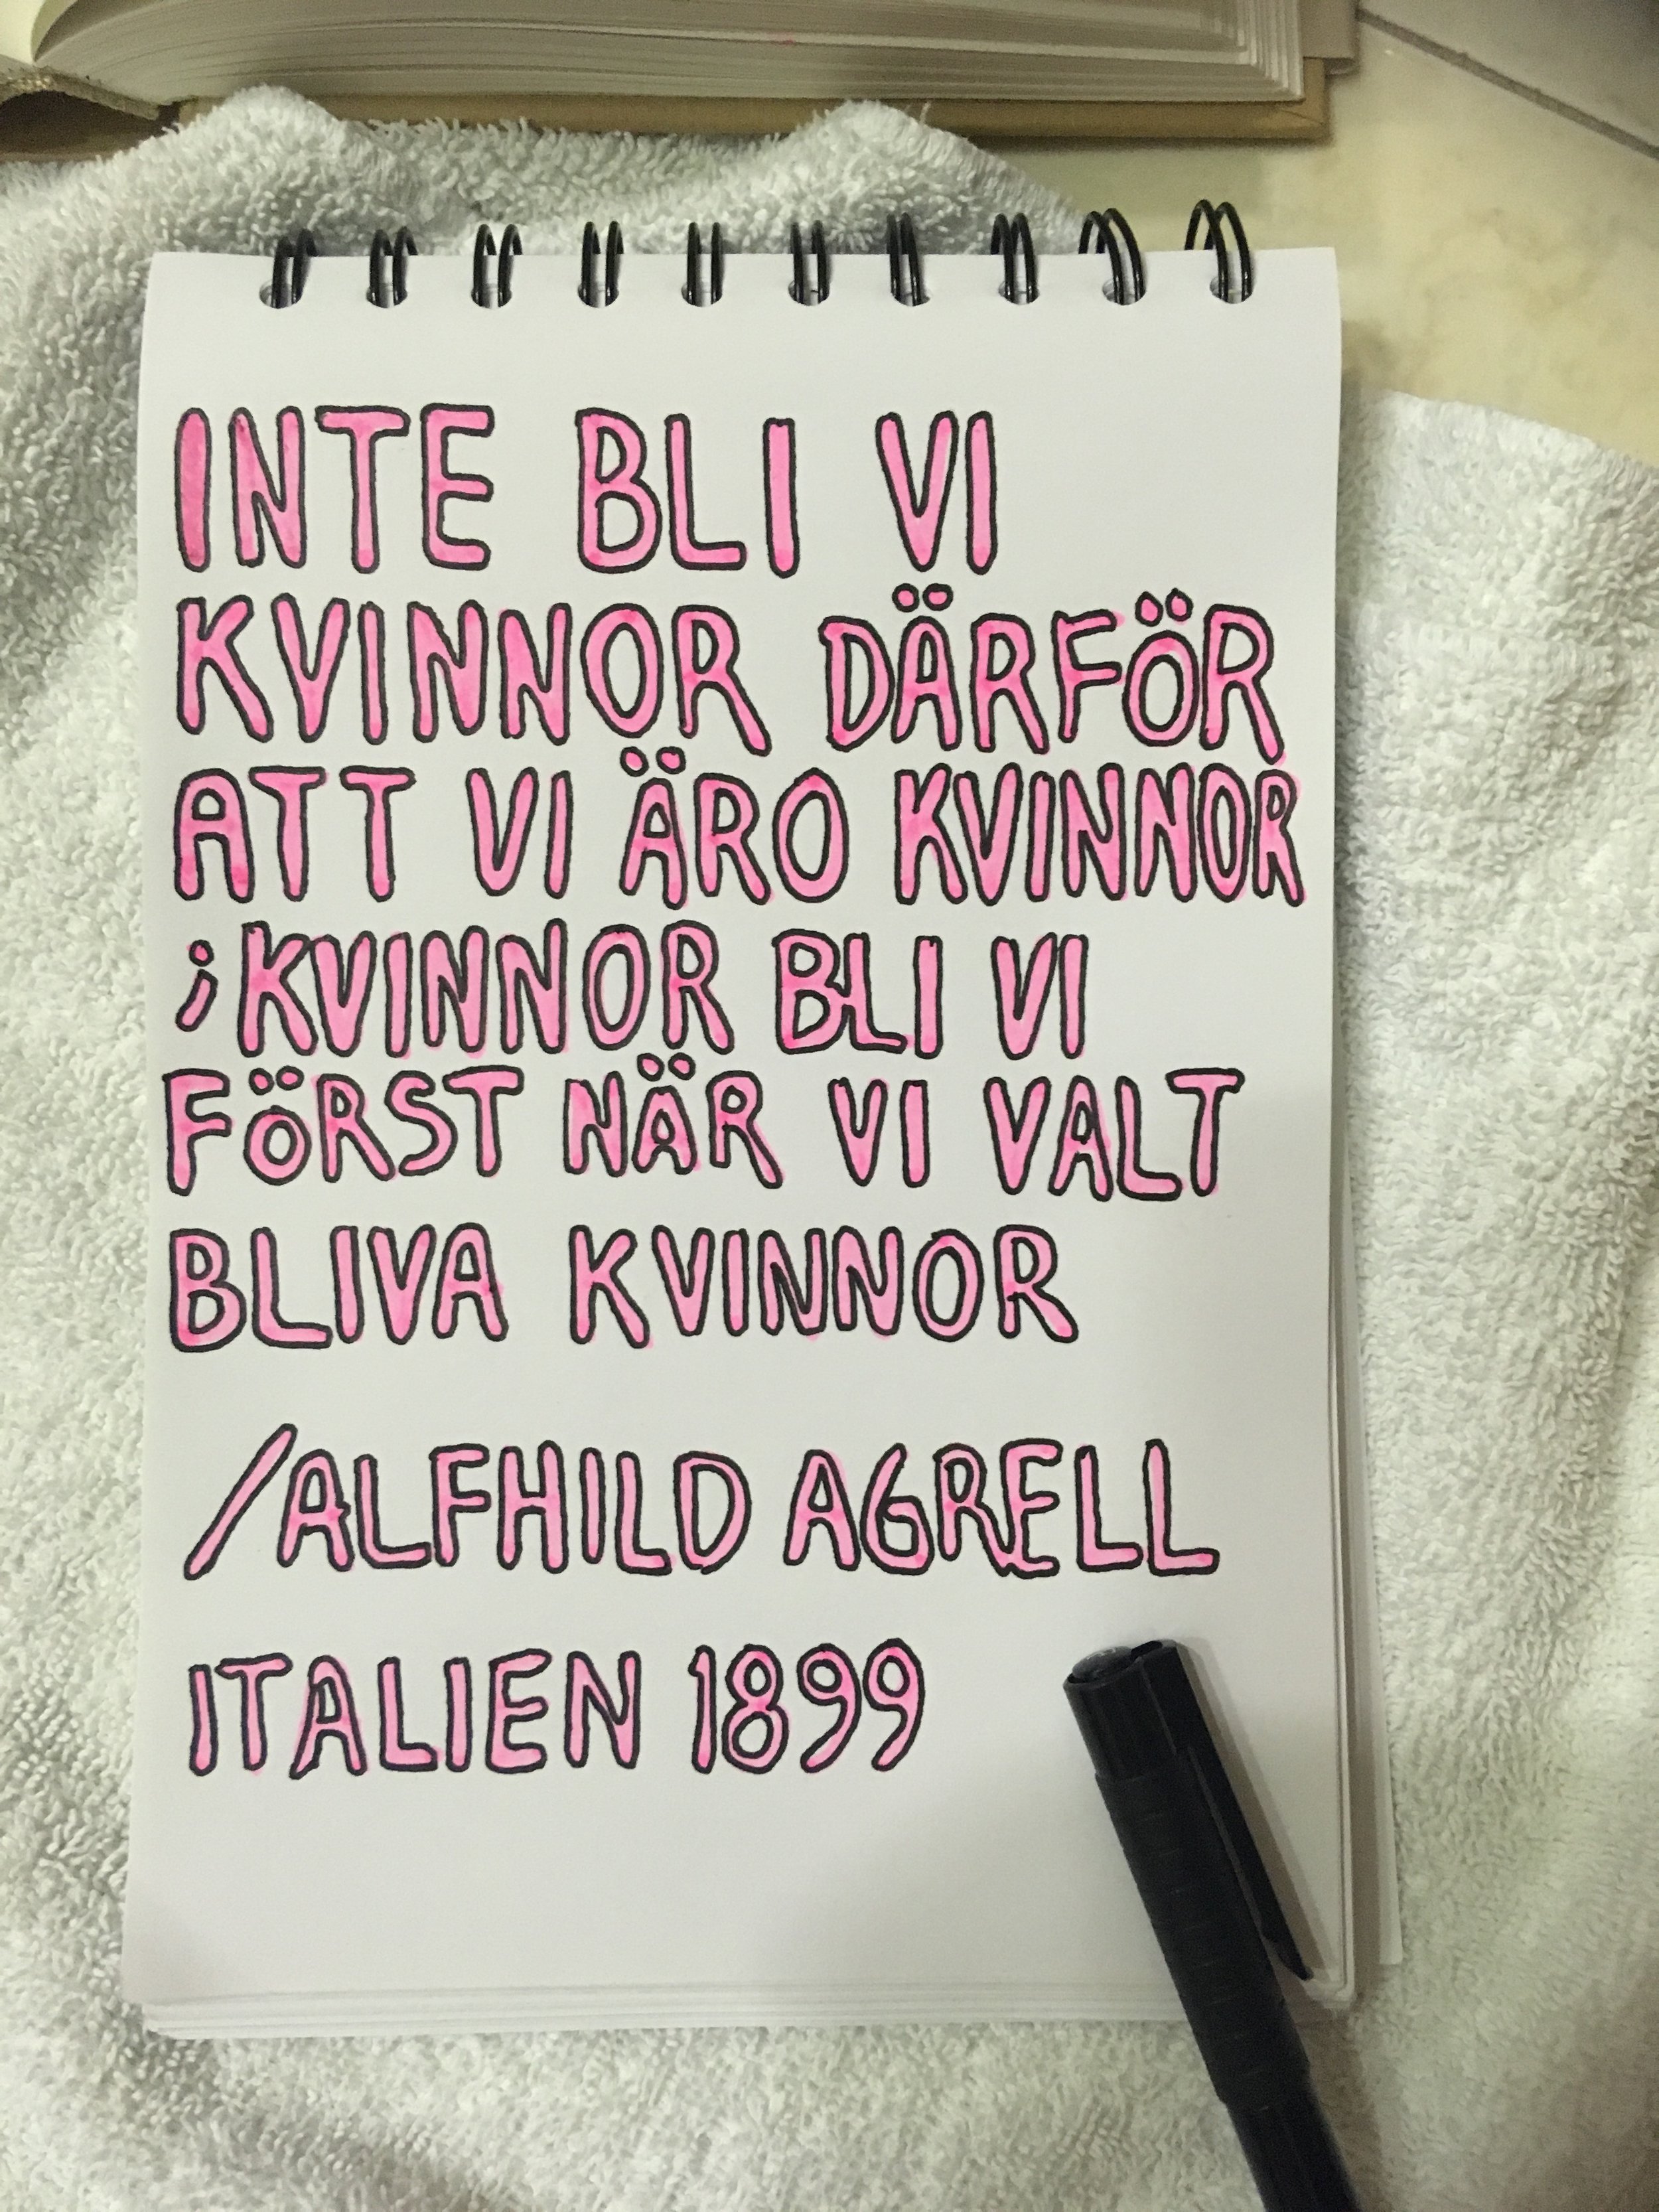 INTE BLI VI
KVINNOR DÄRFÖR
ATT VI ÄRO KVINNOR
;KVINNOR BLI VI
FÖRST NÄR VI VALT
BLIVA KVINNOR
/ALFHILD AGRELL
ITALIEN 1899